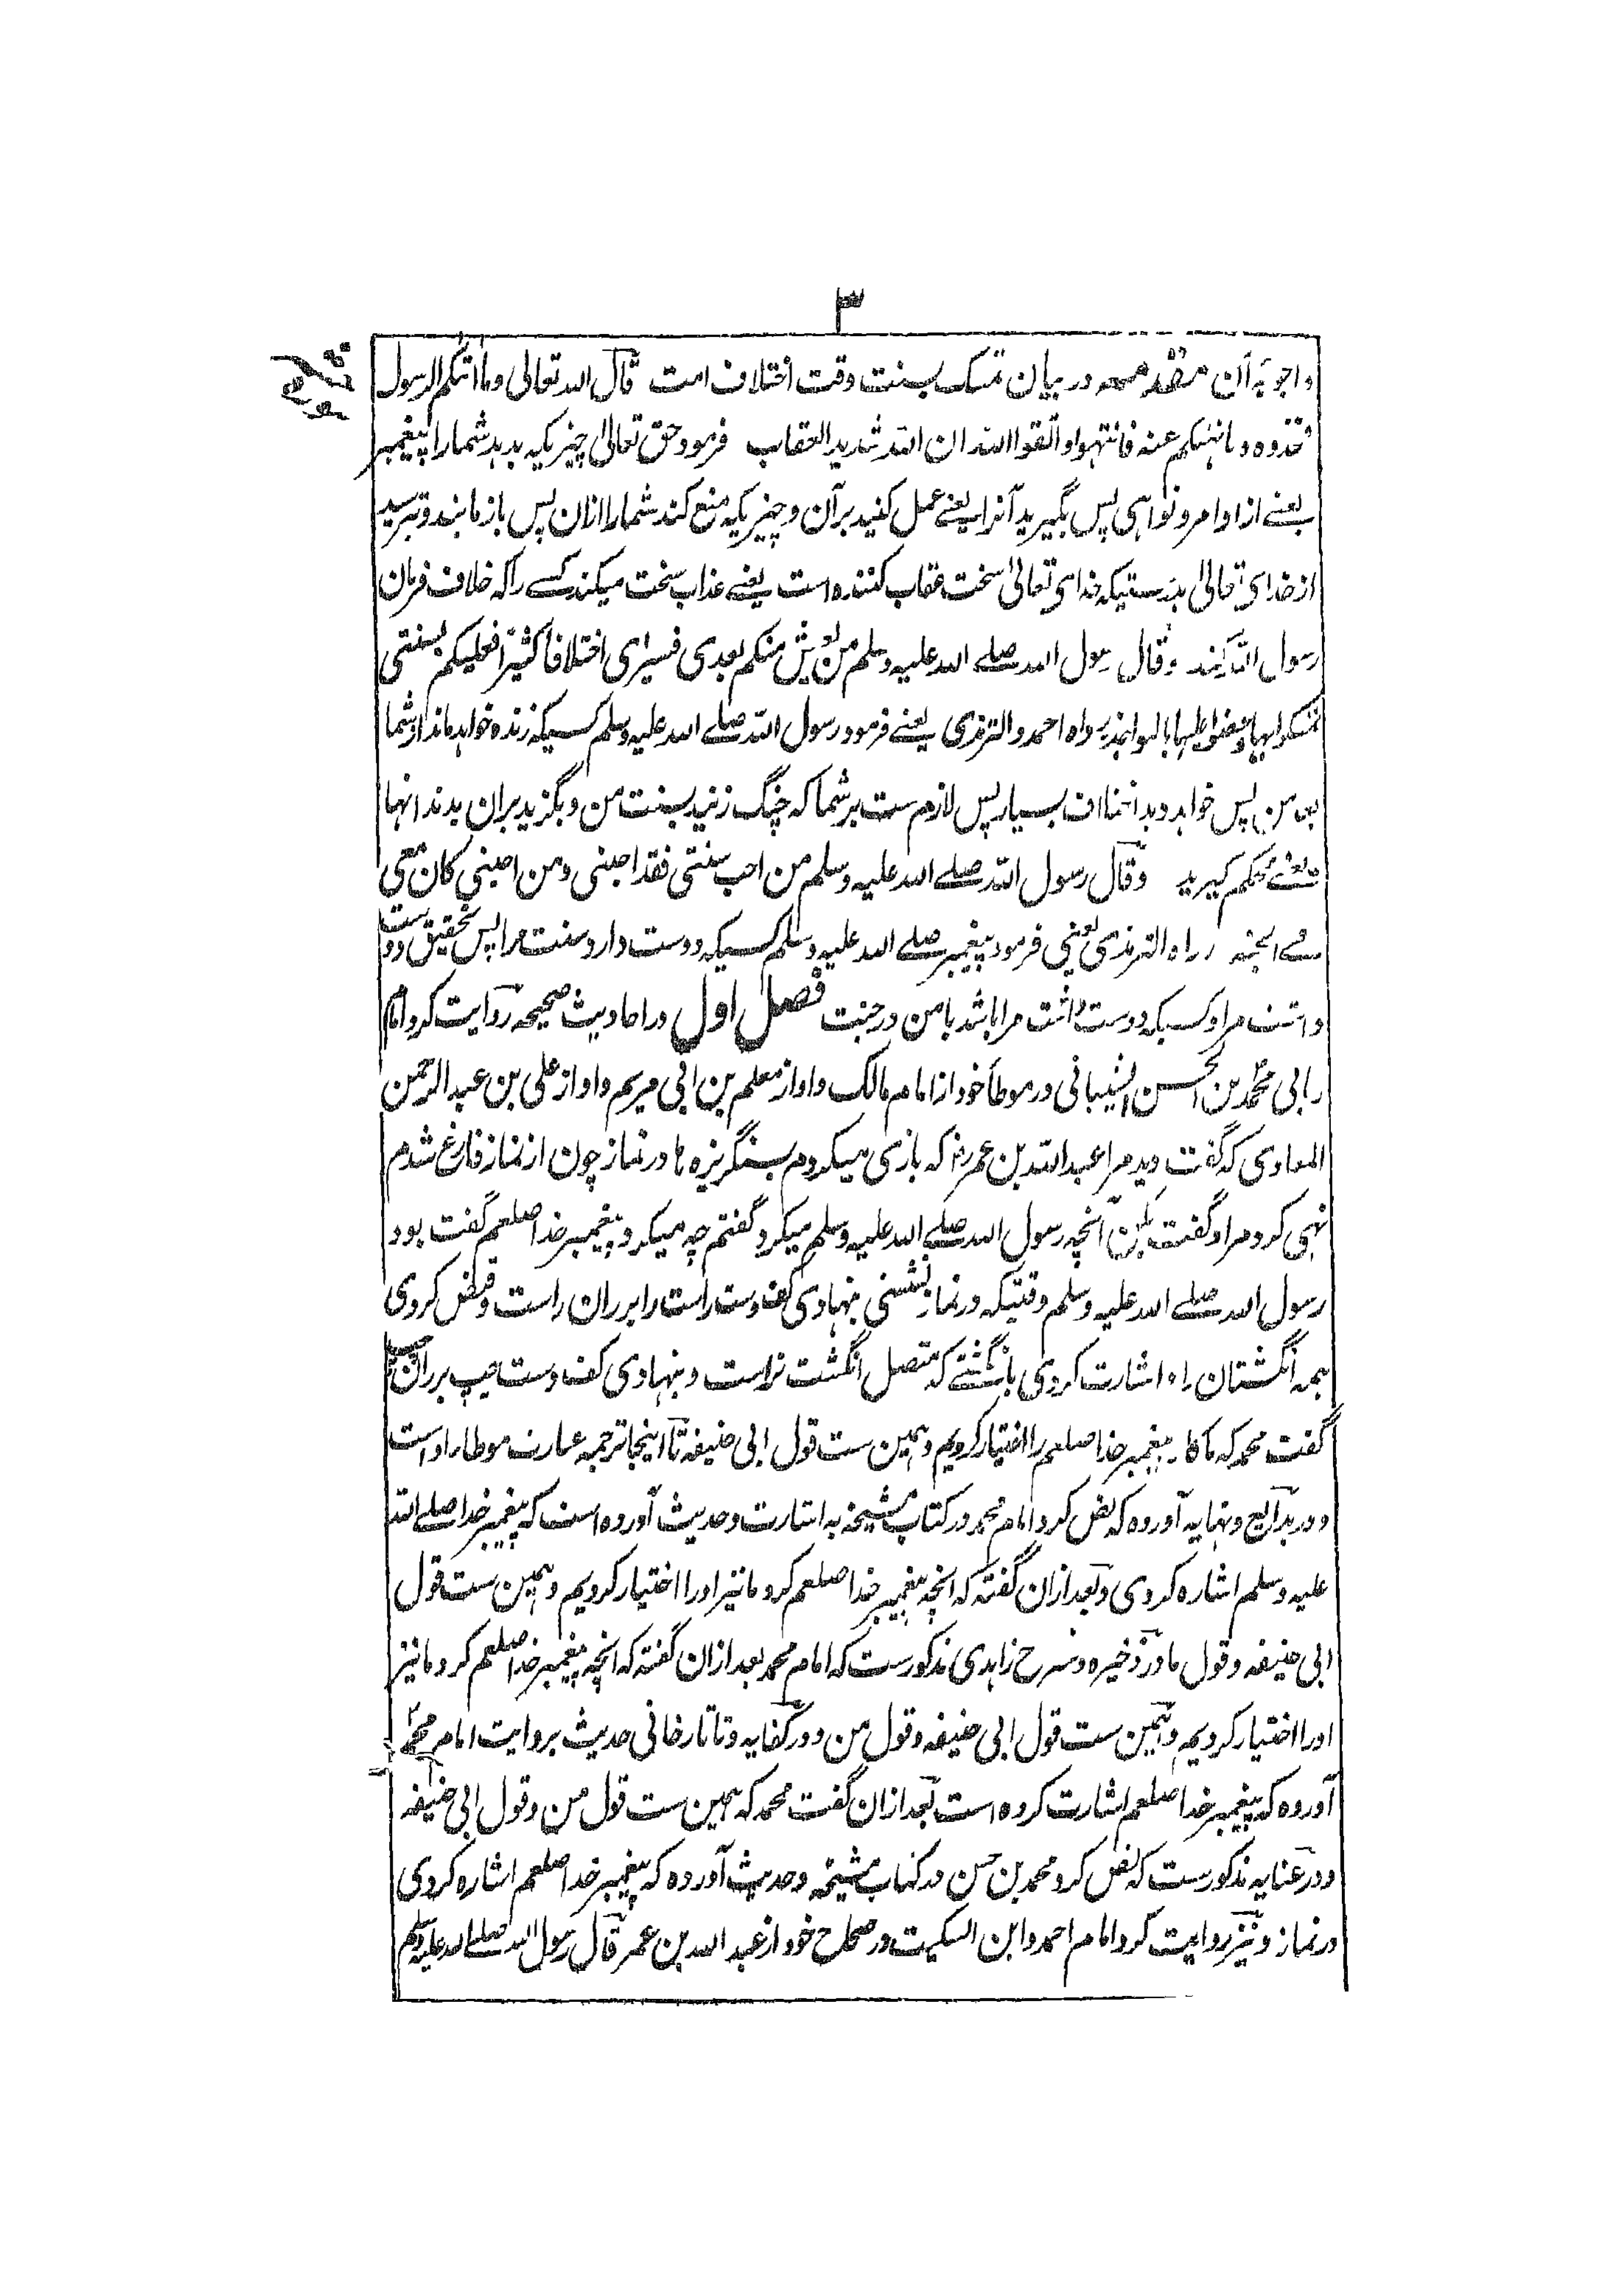 ۳
واجوبه آن مقدمه در بیان تمسک بسنت وقت اختلاف امت قال الله تعالی وما اتکم الرسول
فخذوه وما نهٰکم عنه فانتهوا واتقوا الله ان الله شدید العقاب فرمود حق تعالیٰ چیزیکه بدهد شما را پیغمبر
یعنے از اوامر و نواهی پس بگیرید آنرا یعنے عمل کنید بر آن و چیزیکه منع کند شما را ازان پس باز مانید و بترسید
از خدای تعالیٰ بدرستیکه خدای تعالیٰ سخت عقاب کننده است یعنے عذاب سخت میکند کسے را که خلاف فرمان
رسول الله کند وقال رسول الله صلے الله علیه وسلم من یعش منکم بعدی فسیرای اختلافاً کثیراً فعلیکم بسنتی
تمسکوا بها وعضوا علیها بالنواجذ رواه احمد والترمذی یعنے فرمود رسول الله صلے الله علیه وسلم کسیکه زنده خواهد ماند از شما
پس من پس خواهد دید اختلاف بسیار پس لازم ست بر شما که چنگ زنید بسنت من و بگزید بران بدندانها
یعنے محکم گیرید وقال رسول الله صلے الله علیه وسلم من احب سنتی فقد احبنی ومن احبنی کان معی
فے الجنة رواه الترمذی یعنی فرمود پیغمبر صلے الله علیه وسلم کسیکه دوست دارد سنت مرا پس بتحقیق دوست
داشت مرا و کسیکه دوست داشت مرا باشد با من در جنت فصل اول در احادیث صحیحه روایت کرد امام
ربانی محمد بن الحسن الشیبانی در موطأ خود از امام مالک و او از مسلم بن ابی مریم و او از علی بن عبد الرحمن
المعاوی که گفت دید مرا عبد الله بن عمر رض که بازی میکردم بسنگریزه ها در نماز چون از نماز فارغ شدم
نهی کرد مرا و گفت بکن آنچه رسول الله صلے الله علیه وسلم میکرد گفتم چه میکرد پیغمبر خدا صلعم گفت بود
رسول الله صلے الله علیه وسلم وقتیکه در نماز نشستی بنهادی کف دست راست را بر ران راست و قبض کردی
همه انگشتان را و اشارت کردی بانگشتے که متصل انگشت نراست و بنهادی کف دست چپ بر ران چپ
گفت محمد که ما کار پیغمبر خدا صلعم را اختیار کردیم و همین ست قول ابی حنیفه تا اینجا ترجمه عبارت موطا را و است
و در بدایع و نهایه آورده که نص کرد امام محمد در کتاب مشیخه به اشارت و حدیث آورده است که پیغمبر خدا صلے الله
علیه وسلم اشاره کردی و بعد ازان گفته که آنچه پیغمبر خدا صلعم کرد ما نیز او را اختیار کردیم و همین ست قول
ابی حنیفه و قول ما و در ذخیره و شرح زاهدی مذکورست که امام محمد بعد ازان گفته که آنچه پیغمبر خدا صلعم کرد ما نیز
او را اختیار کردیم و همین ست قول ابی حنیفه و قول من و در کفایه و تاتارخانی حدیث بروایت امام محمد
آورده که پیغمبر خدا صلعم اشارت کرده است بعد ازان گفت محمد که همین ست قول من و قول ابی حنیفه
و در عنایه مذکورست که نص کرد محمد بن حسن در کتاب مشیخه و حدیث آورده که پیغمبر خدا صلعم اشاره کردی
در نماز و نیز روایت کرد امام احمد و ابن السکیت در صحاح خود از عبد الله بن عمر قال رسول الله صلے الله علیه وسلم